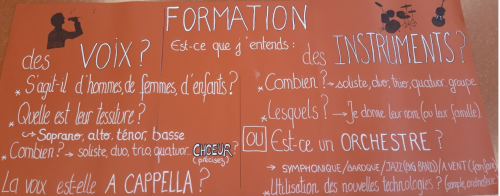 FORMATION
Est-ce que j'entends :
des VOIX ?
* S'agit-il d'hommes, de femmes, d'enfants ?
* Quelle est leur tessiture ?
↳ Soprano, alto, ténor, basse
* Combien ? → soliste, duo, trio, quatuor, CHOEUR ?
(précisez)
La voix est-elle A CAPPELLA ?
OU
des INSTRUMENTS ?
* Combien ? → soliste, duo, trio, quatuor, groupe
* Lesquels ? → Je donne leur nom (ou leur famille)
Est-ce un ORCHESTRE ?
→ SYMPHONIQUE / BAROQUE / JAZZ (BIG BAND) / A VENT
* Utilisation des nouvelles technologies ?